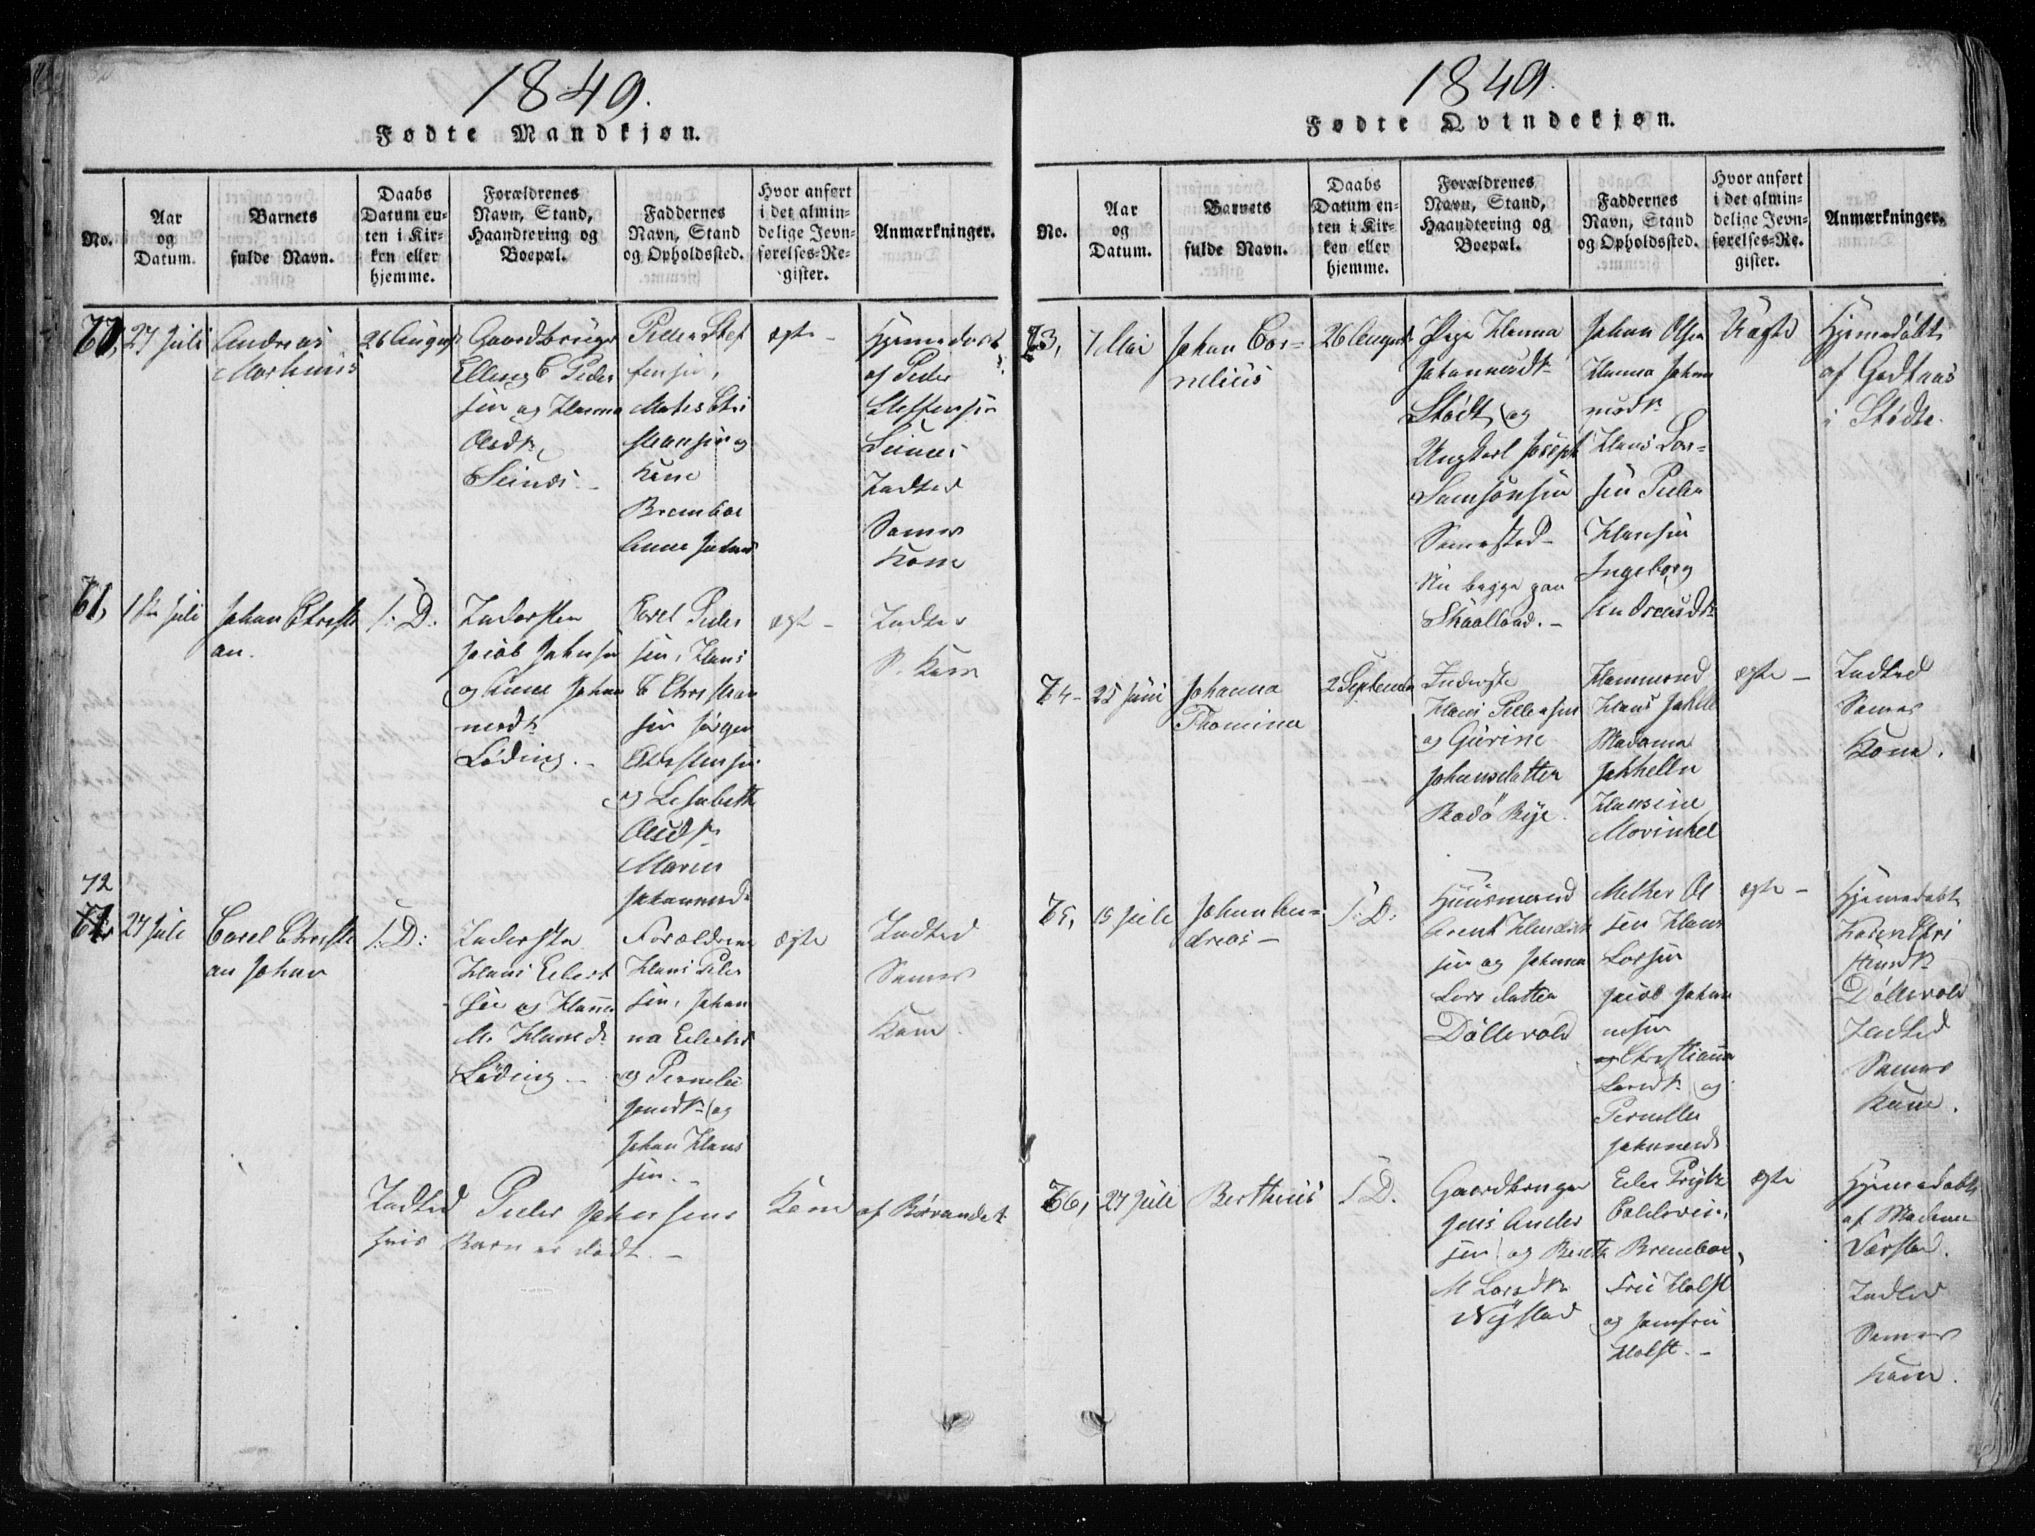 1849.
Fødte Mandkjøn.
No.
Aar
og
Datum.
Barnets
fulde Navn.
Daabs
Datum en-
ten i Kir-
ken eller
hjemme.
Forældrenes
Navn, Stand,
Haandtering og
Boepæl.
Faddernes
Navn, Stand
og Opholdssted.
Hvor anført
i det almin-
delige Jevn-
førelses-Re-
gister.
Anmærkninger.
27 Juli
Andreas
26 August
Gaardbruger
Elling C Peder
sen og Hanna
Olsdtr
Seines
Peder Stef
fensen,
Mates Chri
stiansen og
Kone
Bremboe
Anne Johns
ægte
Hjemedøbt
af Peder
Steffensen
Seines
Indled
Sames
Kone
71,
18 Juli
Johan Christi
an.
I: D:
Inderster
Jacob Johnsen
og Anne Johan
nesdtr
Løding.
Carel Peder
sen, Hans
C Christian
sen Jørgen
Christensen
og Lisabeth
Olsdtr
Maren
Johannesd
ægte
Indled
S. Kone
72
27 Juli
Carel Christi
an Johan
I: D:
Inderster
Hans Eilert
sen og Hanna
M. Hansd
Løding
Forældrene
Hans Peder
sen, Johan
na Eilerts
og Pernelle
Jensdtr og
Johan Hans
sen.
ægte
Indled
Sames
Kone.
Indled Peder Johnsens Kone af
hvis Barn er dødt.
1849.
Fødte Qvindekjøn.
No.
Aar
og
Datum.
Barnets
fulde Navn.
Daabs
Datum en-
ten i Kir-
ken eller
hjemme.
Forældrenes
Navn, Stand,
Haandtering og
Boepæl.
Faddernes
Navn, Stand
og Opholdssted.
Hvor anført
i det almin-
delige Jevn-
førelses-Re-
gister.
Anmærkninger.
73,
7 Mai
Johan Cor-
nelius
26 August
Pige Hanna
Johannesdtr
Stødt og
Ungkarl Joseph
Samsonsen
Nu begge paa
Skaalland.
Johan Olsen
Hanna Johan
nesdtr
Hans Lar-
sen Peder
Hansen
Ingeborg
Andreasdtr
Uægte
Hjemedøbt
af
i Stødte.
74
25 Juni
Johanna
Thomina
2 September
Inderste
Hans Pedersen
og Gurine
Johansdatter
Bodø Bye.
Hammond
Hans Jakhell
Madama
Jakhelln
Hansine
Movinkel
ægte
Indled
Sames
Kone.
75,
15 Juli
Johan An-
dreas
I: D:
Huusmand
Arent Hendrik
sen og Johanna
Lars datter
Døllevold
Melker Ol
sen Hans
Larsen
Jacob Johan
nesen
og Christianna
Larsdtr og
Pernelle
Johannesd
ægte
Hjemedøbt
Karen Chri
stensdtr
Døllevold
Indled
Sames
Kone.
76,
27 Juli
Bertheus
I: D.
Gaardbruger
Jens Ander
sen og Berith
M Larsdtr
Nystad
Eiler Prytz
Bremboe,
Frue Holst
og Jomfru
Holst.
ægte
Hjemedøbt
af Madame
Indled
Sames
Kone.